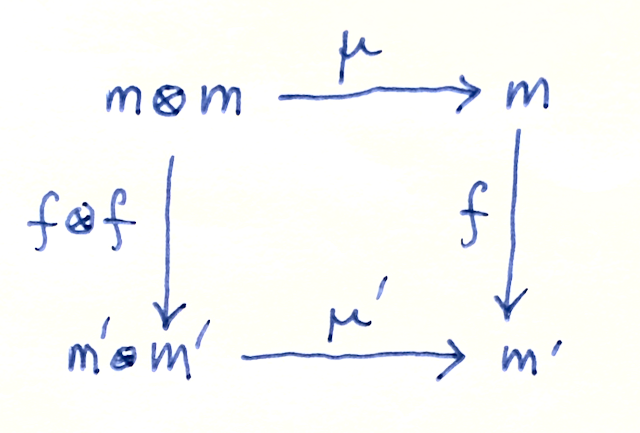 μ
m⊗m → m
f⊗f ↓ f ↓
μ′
m′⊗m′ → m′